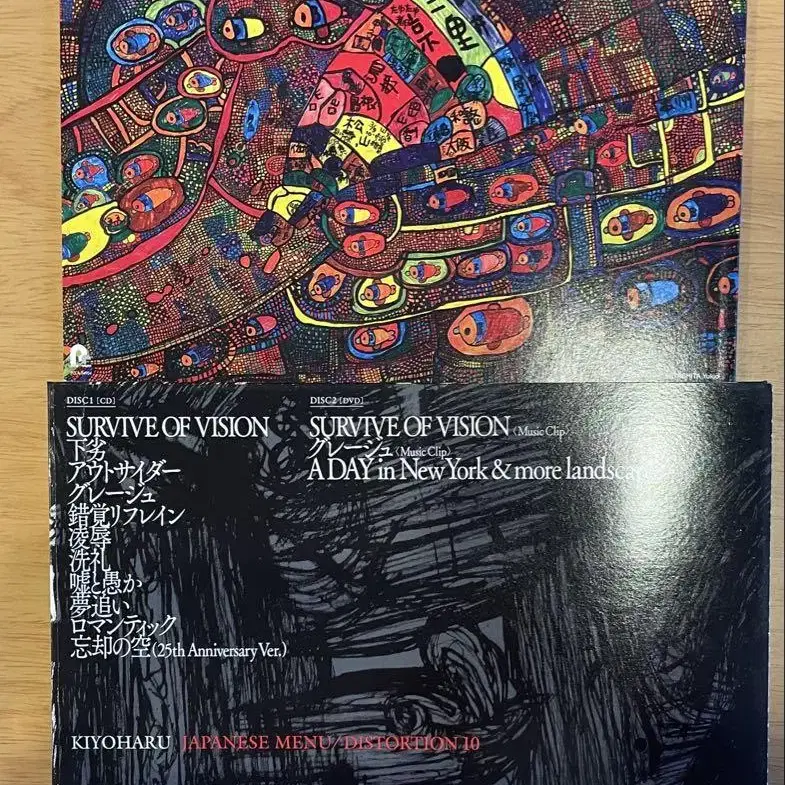 松山
大阪
DISC1 [CD]
SURVIVE OF VISION
下劣
アウトサイダー
グレージュ
錯覚リフレイン
凌辱
洗礼
嘘と愚か
夢追い
ロマンティック
忘却の空 (25th Anniversary Ver.)
DISC2 [DVD]
SURVIVE OF VISION (Music Clip
グレージュ (Music Clip)
A DAY in New York & more landsca
KIYOHARU JAPANESE MENU/DISTORTION 10